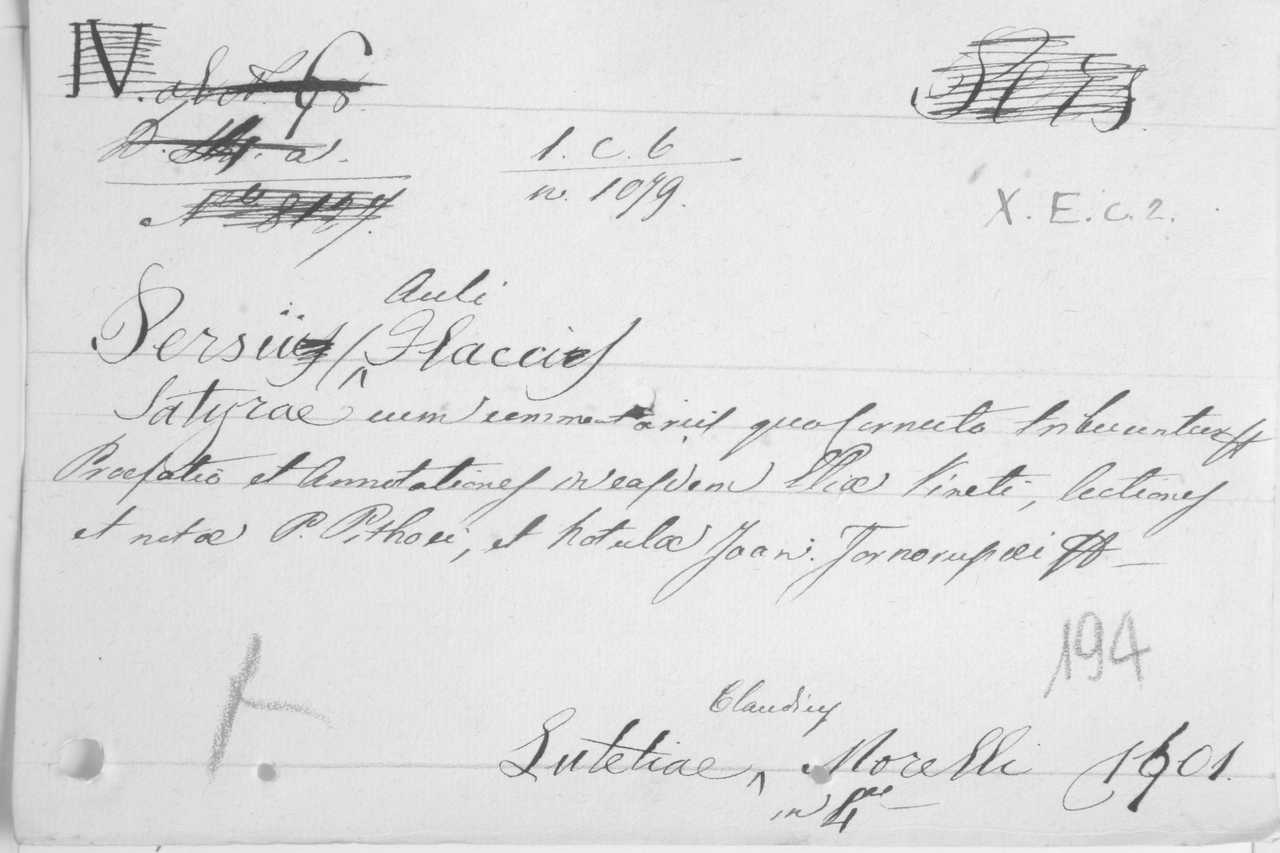 N.
1. C. 6
n. 1079.
X. E. c. 2.
Auli
Persii / Flacci
Satyrae cum commentariis qua Cornuto tribuuntur
Praefatio et Annotationes in easdem Eliæ Vineti, lectiones
et notæ P. Pithoei, et Notulæ Joan. Tornorupæi
194
Claudius
Lutetiae Morelli 1601.
in 4